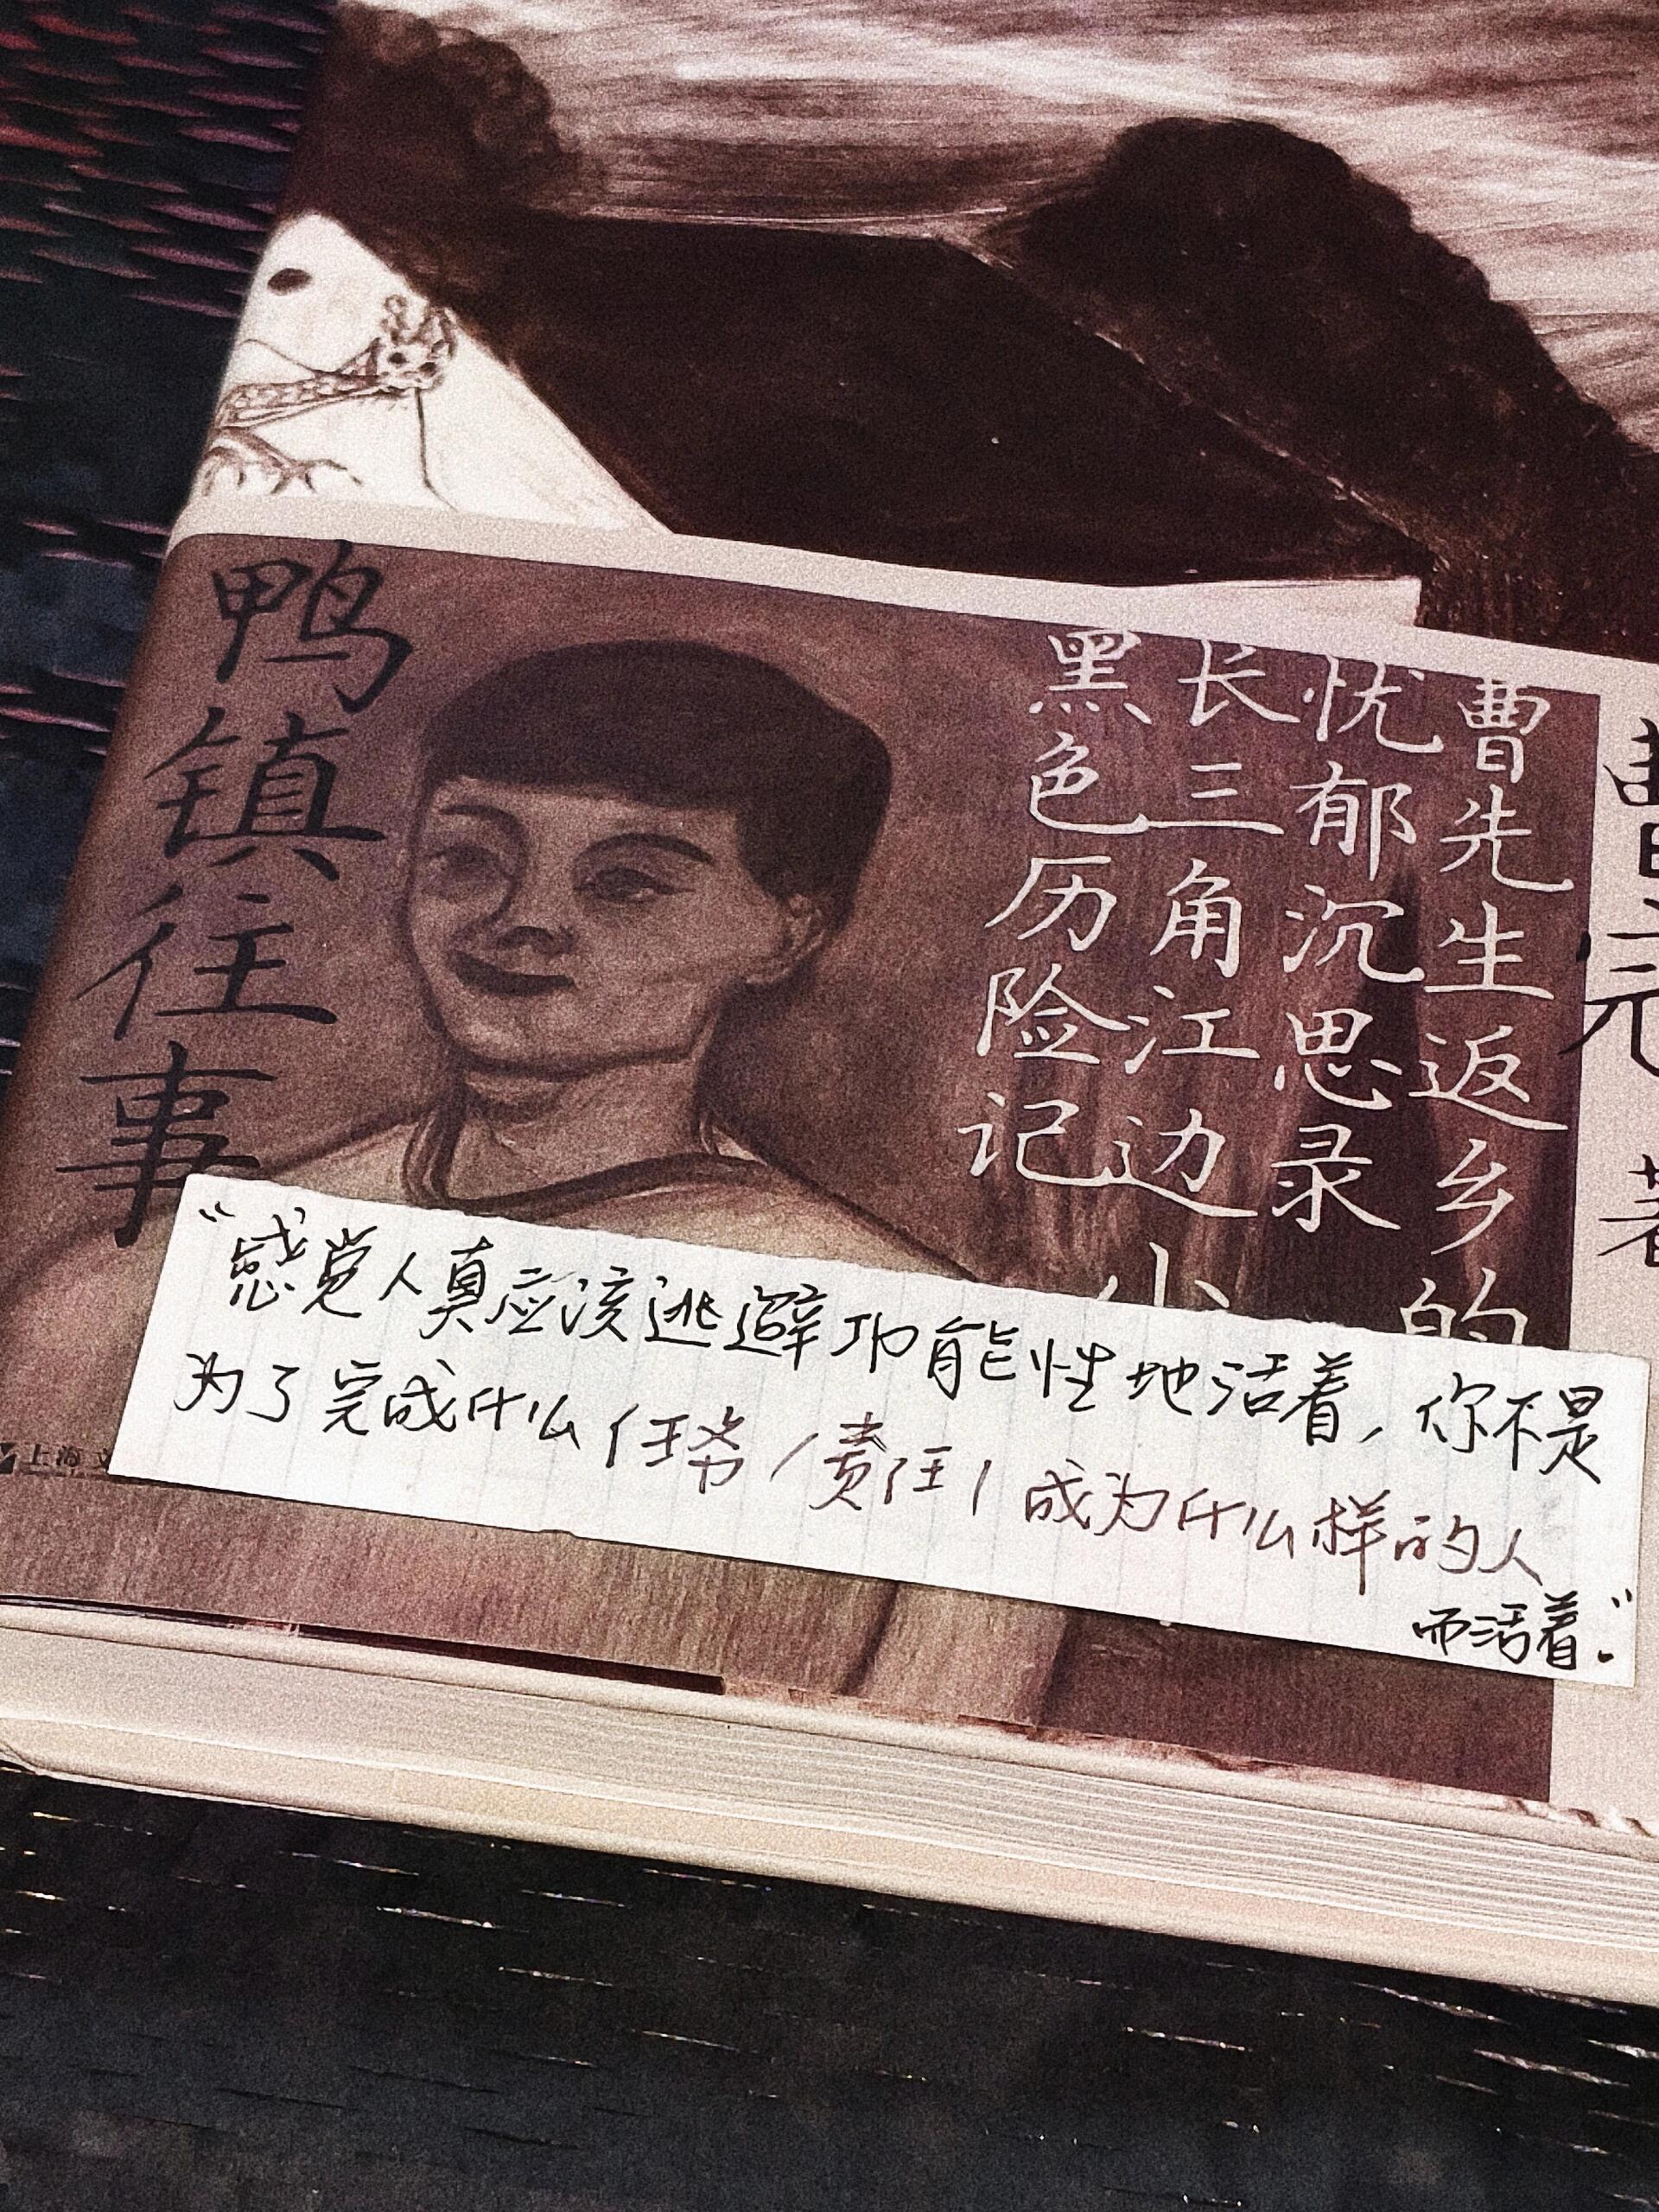 鸭镇往事
曹先生返乡的
忧郁沉思录
长三角江边小
黑色历险记
著
上海文
“感觉人真应该逃避功能性地活着,你不是
为了完成什么任务/责任/成为什么样的人
而活着.”